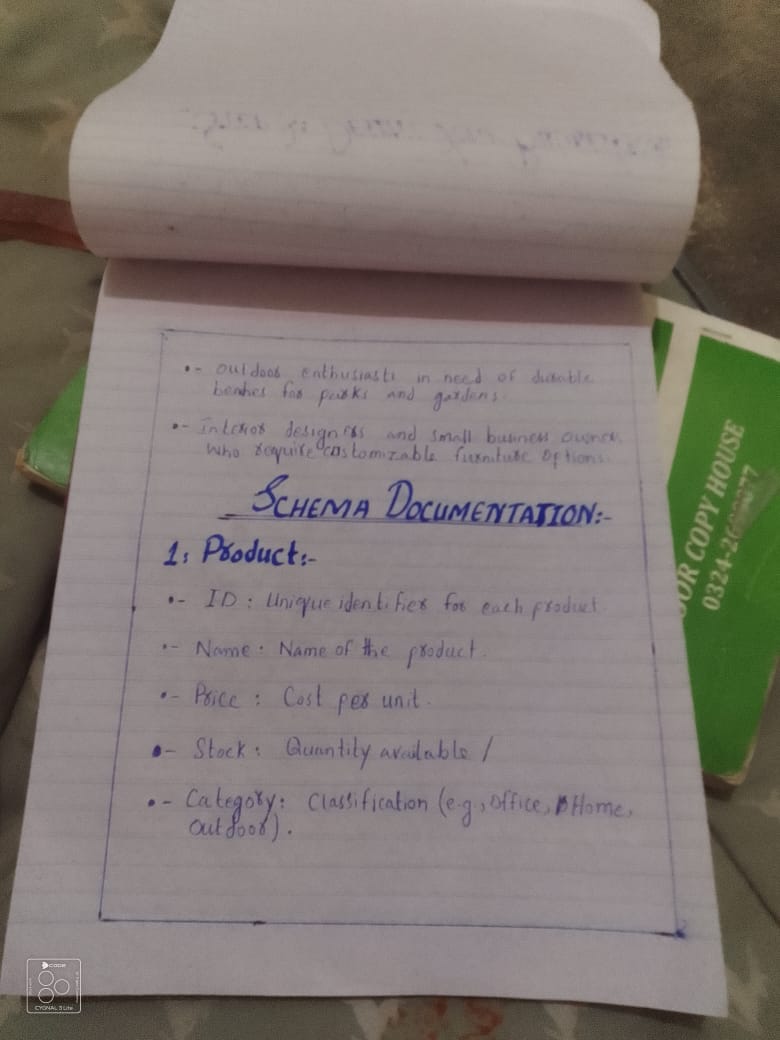 •- outdoor enthusiasts in need of durable
benhes for parks and gardens.
•- Interior designers and small business owner
who require customizable furniture options.
SCHEMA DOCUMENTATION:-
1: Product:-
•- ID : Unique identifier for each product.
•- Name : Name of the product.
•- Price : Cost per unit.
•- Stock : Quantity available /
•- Category : Classification (e.g., Office, Home,
Outdoor).
COPY HOUSE
0324-2
CODE
CYGNAL 3 Lite